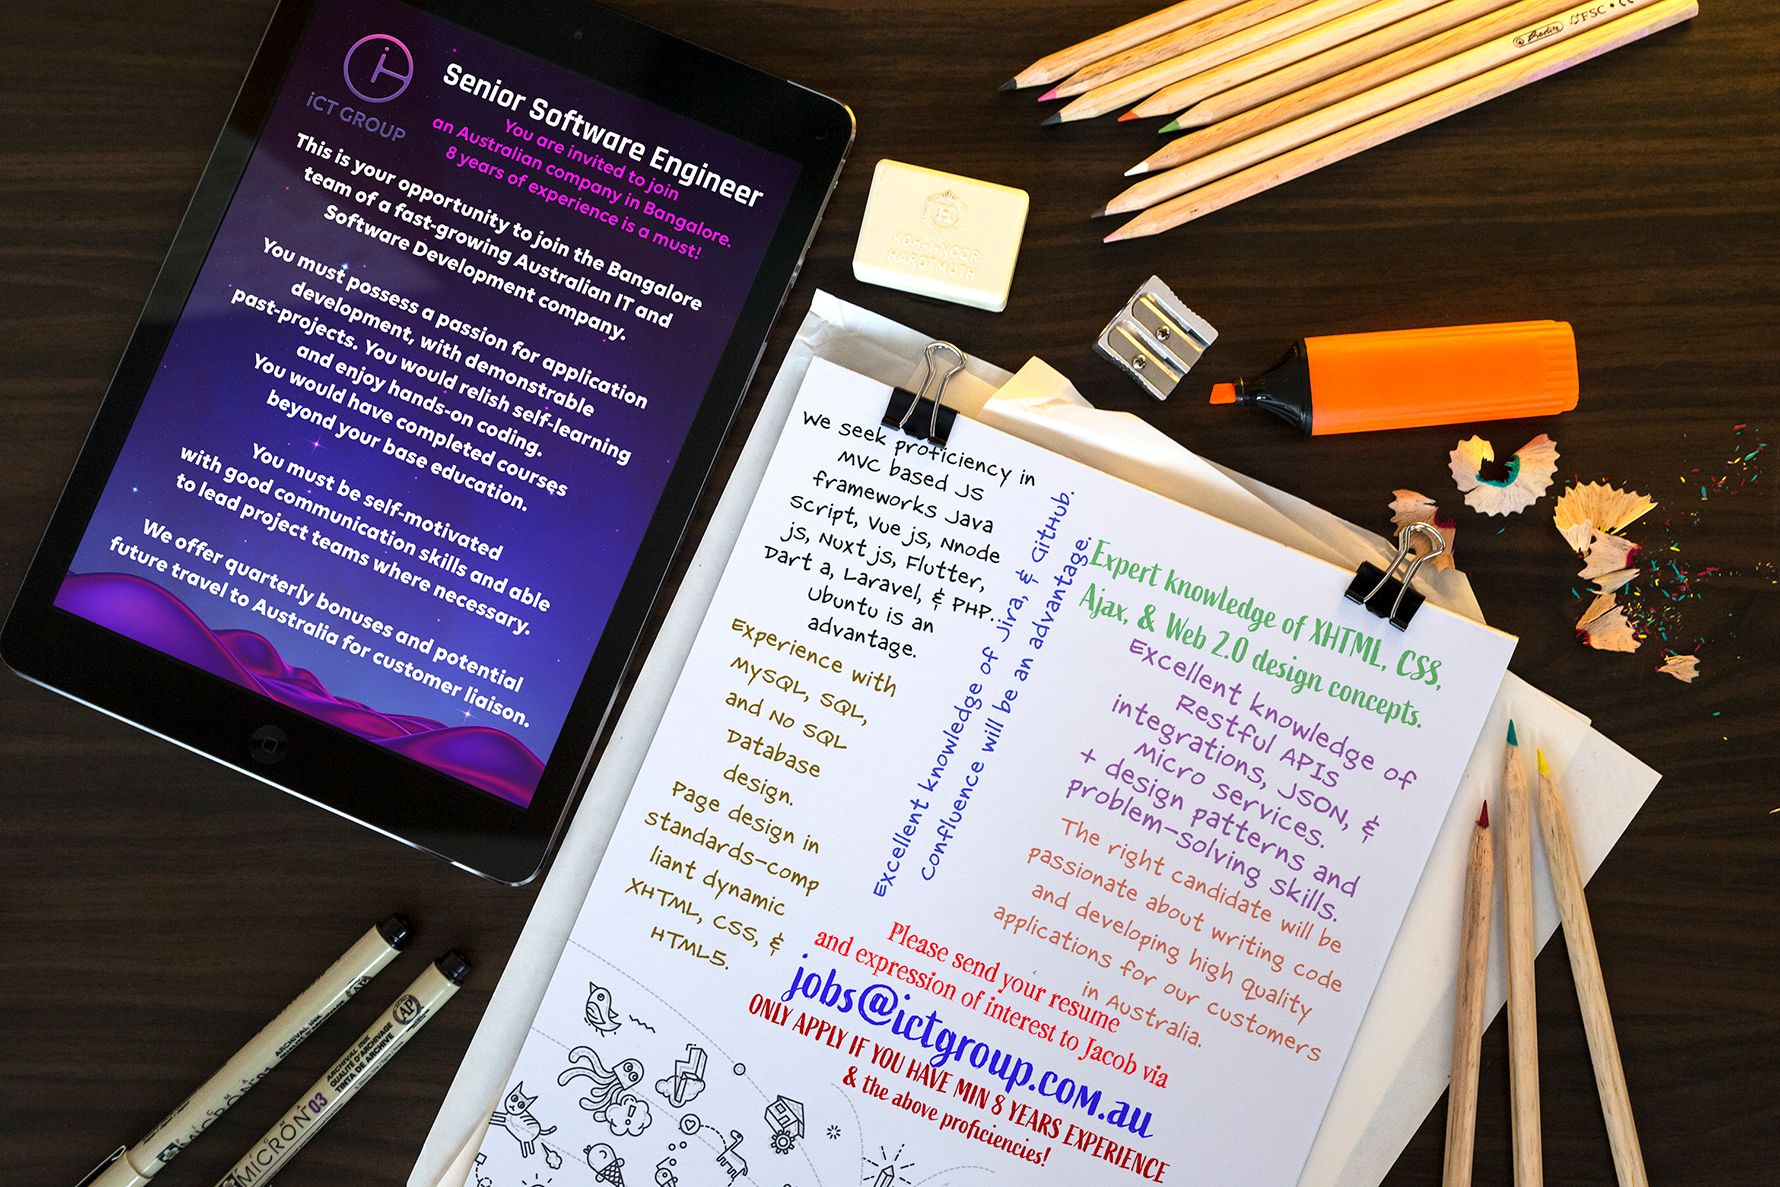 iCT GROUP
Senior Software Engineer
You are invited to join
an Australian company in Bangalore.
8 years of experience is a must!
This is your opportunity to join the Bangalore
team of a fast-growing Australian IT and
Software Development company.
You must possess a passion for application
development, with demonstrable
past-projects. You would relish self-learning
and enjoy hands-on coding.
You would have completed courses
beyond your base education.
You must be self-motivated
with good communication skills and able
to lead project teams where necessary.
We offer quarterly bonuses and potential
future travel to Australia for customer liaison.
KOH-I-NOOR
HARDTMUTH
FSC
We seek proficiency in
MVC based JS
frameworks Java
Script, Vue js, Nnode
js, Nuxt js, Flutter,
Dart a, Laravel, & PHP.
Ubuntu is an
advantage.
Experience with
MySQL, SQL,
and No SQL
Database
design.
Page design in
standards-comp
liant dynamic
XHTML, CSS, &
HTML5.
Excellent knowledge of Jira, & GitHub.
Confluence will be an advantage.
Expert knowledge of XHTML, CSS,
Ajax, & Web 2.0 design concepts.
Excellent knowledge of
Restful APIs
integrations, JSON, &
Micro services.
+ design patterns and
problem-solving skills.
The right candidate will be
passionate about writing code
and developing high quality
applications for our customers
in Australia.
Please send your resume
and expression of interest to Jacob via
jobs@ictgroup.com.au
ONLY APPLY IF YOU HAVE MIN 8 YEARS EXPERIENCE
& the above proficiencies!
ARCHIVAL INK
ARCHIVAL INK
QUALITÉ D'ARCHIVAGE
TINTA DE ARCHIVE
AP
MICRON 03